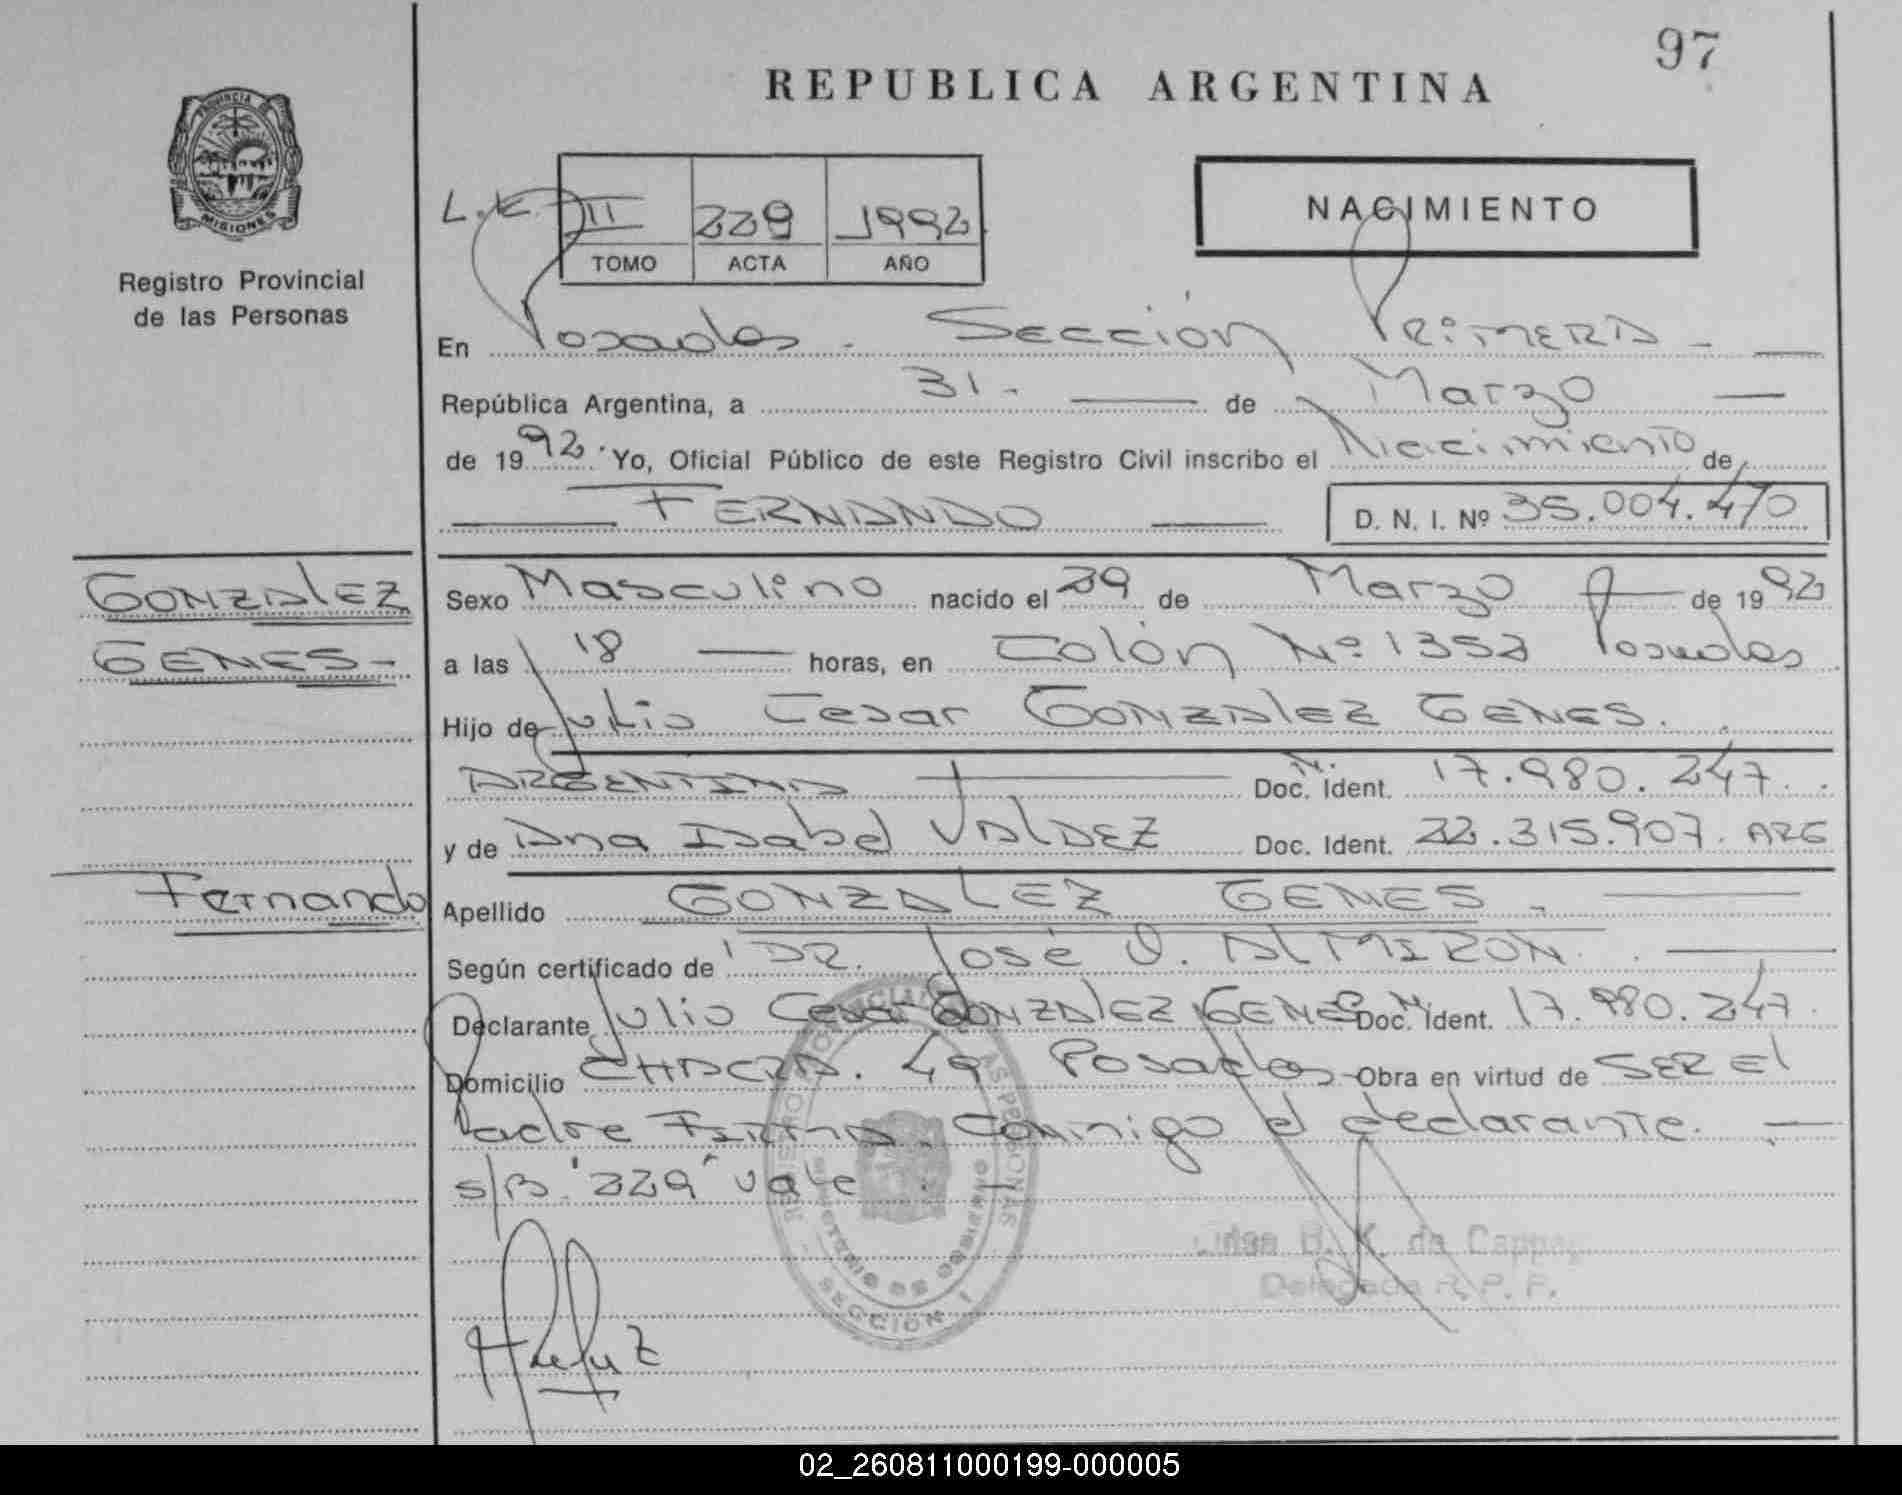 97
REPUBLICA ARGENTINA
PROVINCIA DE
MISIONES
Registro Provincial
de las Personas
L.E. III 229 1992
TOMO ACTA AÑO
NACIMIENTO
En Posadas - Sección PRIMERA -
República Argentina, a 31 - de Marzo
de 1992. Yo, Oficial Público de este Registro Civil inscribo el Nacimiento de
FERNANDO D. N. I. Nº 35.004.470
GONZALEZ
GENES -
Sexo Masculino nacido el 29 de Marzo de 1992
a las 18 horas, en Colón Nº 1352 Posadas
Hijo de Julio Cesar GONZALEZ GENES.
ARGENTINO Doc. Ident. M. 17.980.247.
y de Ana Isabel VALDEZ Doc. Ident. 22.315.907. ARG
Fernando
Apellido GONZALEZ GENES -
Según certificado de DR. José O. ALMIRON.
Declarante Julio Cesar GONZALEZ GENES Doc. Ident. M. 17.980.247.
Domicilio CHACRA. 49 Posados - Obra en virtud de SER El
Padre FIRMA. Conmigo el declarante.
s/B. "229" vale.
REGISTRO PROVINCIAL DE LAS PERSONAS
MINISTERIO DE GOBIERNO
SECCION 1
B. K. de Cappa
Delegada R. P. P.
02_260811000199-000005